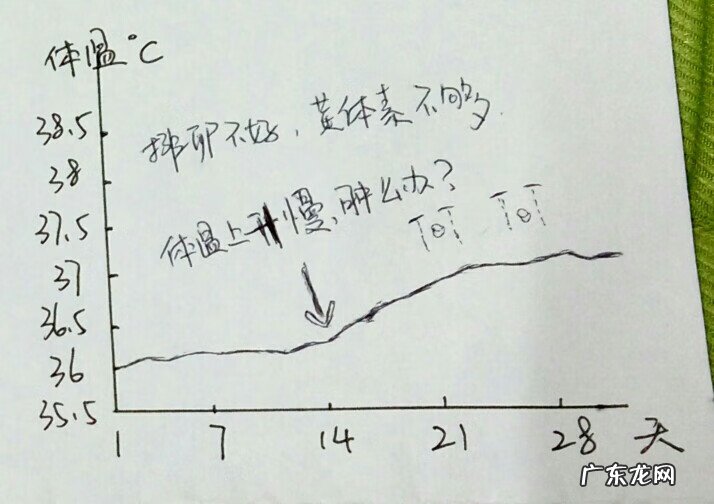 体温°C
38.5
38
37.5
37
36.5
36
35.5
排卵不好，黄体素不够多
体温上升慢，肿么办？
T⊙T T⊙T
1 7 14 21 28 天
广东龙网